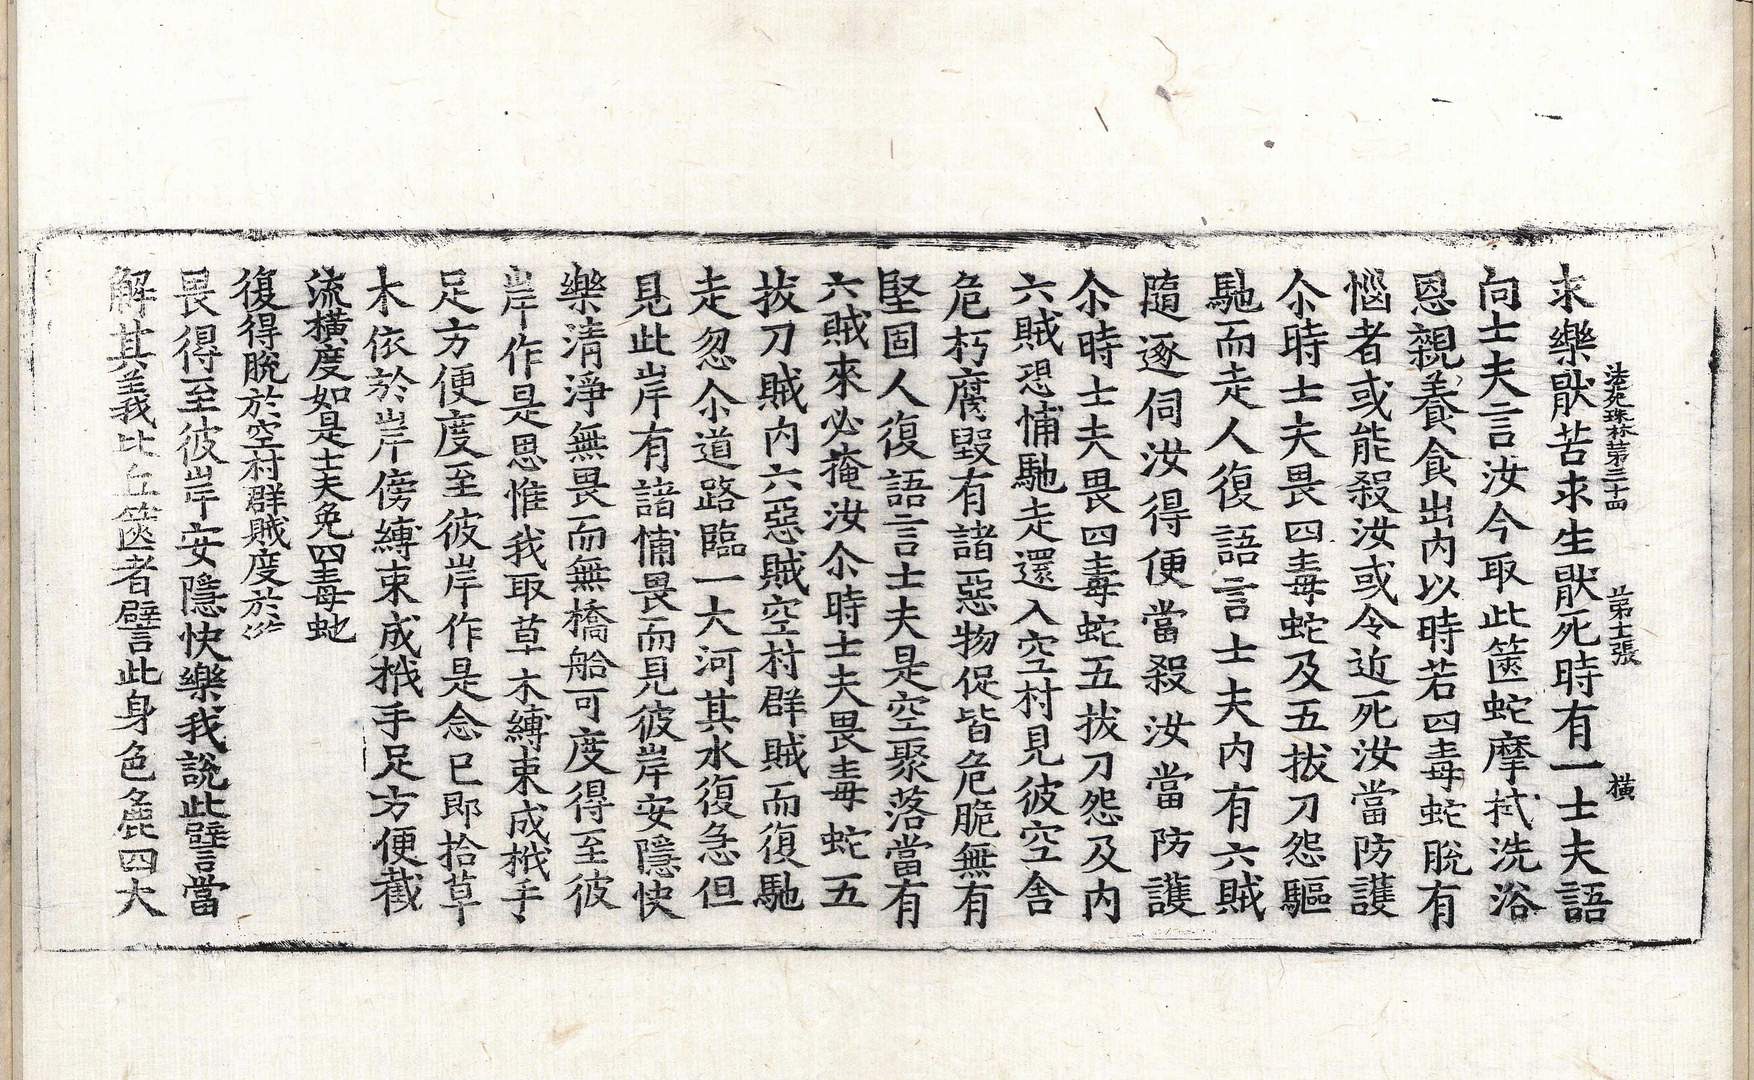 法苑珠林第三十四 第十張 橫
求樂猒苦求生猒死時有一士夫語
向士夫言汝今取此篋蛇摩拭洗浴
恩親養食出內以時若四毒蛇脫有
惱者或能殺汝或令近死汝當防護
尒時士夫畏四毒蛇及五拔刀怨驅
馳而走人復語言士夫內有六賊
隨逐伺汝得便當殺汝當防護
尒時士夫畏四毒蛇五拔刀怨及內
六賊恐怖馳走還入空村見彼空舍
危朽腐毀有諸惡物促皆危脆無有
堅固人復語言士夫是空聚落當有
六賊來必掩汝尒時士夫畏毒蛇五
拔刀賊內六惡賊空村群賊而復馳
走忽尒道路臨一大河其水復急但
見此岸有諸怖畏而見彼岸安隱快
樂清淨無畏而無橋船可度得至彼
岸作是思惟我取草木縛束成栰手
足方便度至彼岸作是念已即拾草
木依於岸傍縛束成栰手足方便截
流橫度如是士夫免四毒虵
復得脫於空村群賊度於
畏得至彼岸安隱快樂我說此譬當
解其義比丘篋者譬此身色麁四大